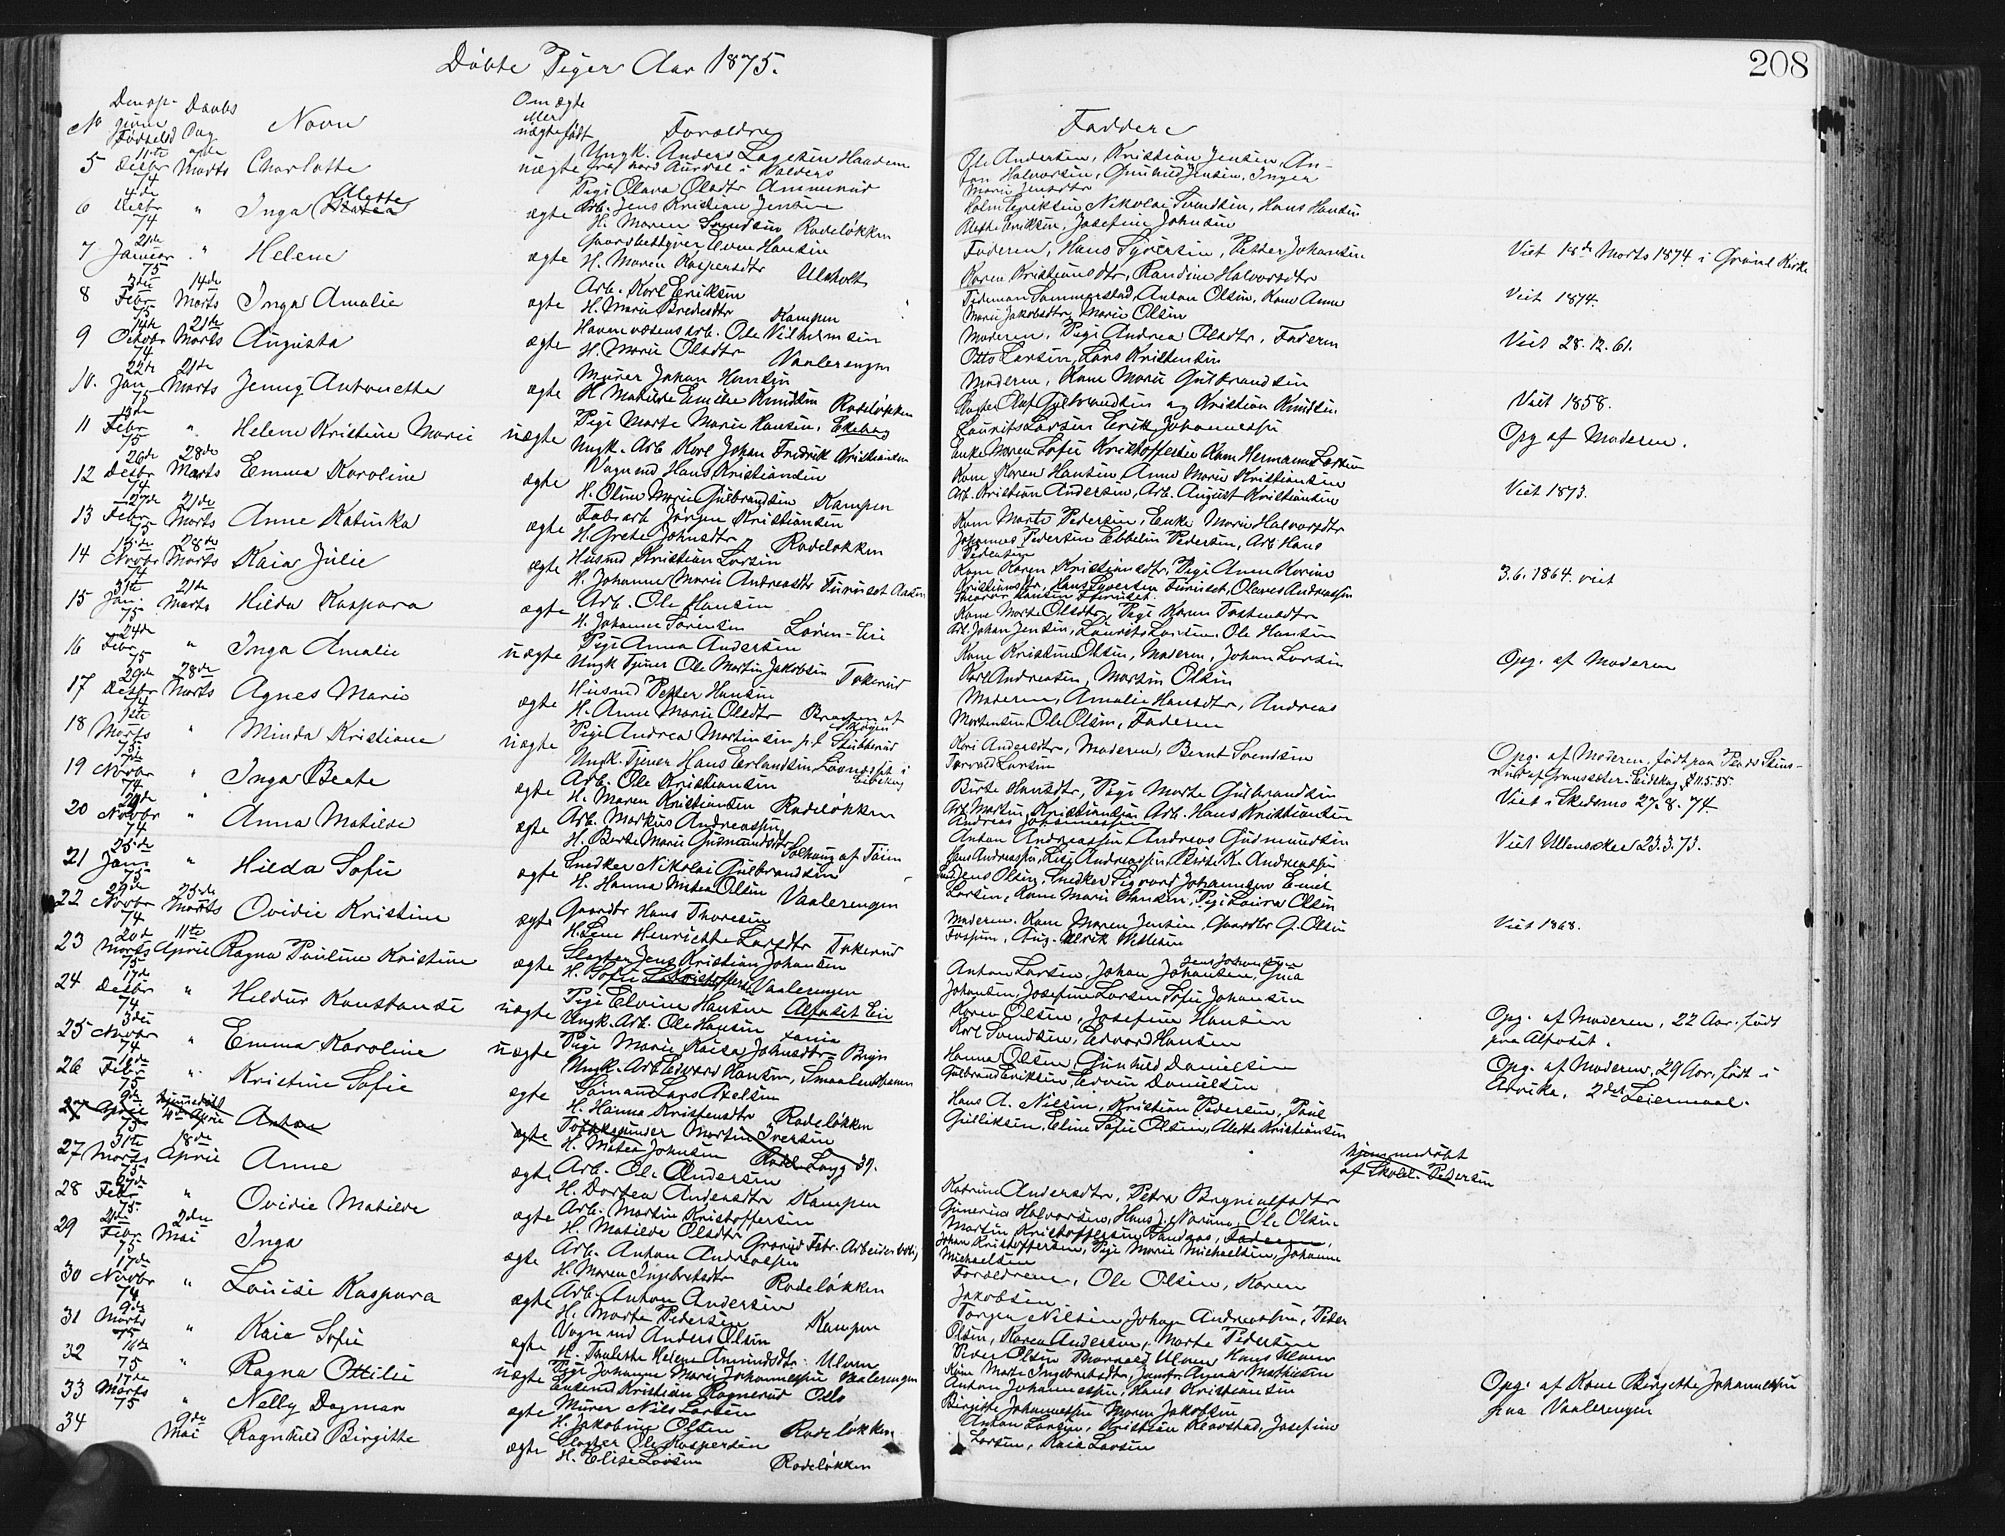 Døbte Piger Aar 1875.
208
No
Fødselsd
Daabs
Dag
Navn
Om ægte
eller
uægte født
Forældre
Faddere
5 11te Decbr 74 Marts Charlotte uægte Ungk. Anders
Pige Olava Olsdtr Ammerud
Ole Andersen, Kristian Jensen, An-
ton Halvorsen, Gunhild Jensen, Inger
Marie Jensdtr
6 4de Decbr 74 " Inga Alette ægte Arb. Jens Kristian Jensen
H. Maren Svendsen Rodeløkken
Nikolai Svendsen, Hans Hansen
Alette Eriksen, Josefine Johnsen
7 21de Januar 75 " Helene ægte Gaardbestyrer Even Hansen
H. Maren Kaspersdtr Ulvholt
Faderen, Hans Syversen, Petter Johansen
Karen Kristiansdtr, Randine Halvorsdtr
Viet 18de Marts 1874 i Grønl Kirke
8 3die Febr 75 14de Marts Inga Amalie ægte Arb. Karl Eriksen
H. Maria Bredesdtr Kampen
Anton Olsen, Kone Anne
Marie Jakobsdtr, Marie Olsen
Viet 1874.
9 14de Octobr 74 21de Marts Augusta ægte Havnevæsensarb. Ole Vilhelmsen
H. Marie Olsdtr Vaalerengen
Moderen, Pige Andrea Olsdtr, Faderen
Otto Larsen, Lars Kristensen
Viet 28.12.61.
10. 22de Jan 75 21de Marts Jenny Antonette ægte Murer Johan Hansen
H. Matilde Emilie Knudsen Rodeløkken
Moderen, Kone Marie Gulbrandsen
Slagter Olaf Gulbrandsen og Kristian Knudsen
Viet 1858.
11 13de Febr 75 " Helene Kristine Marie uægte Pige Marte Marie Hansen, Ekeberg
Ungk. Arb Karl Johan Fredrik Kristiansen
Laurits Larsen Erik Johannessen
Enke Maren Sofie Kristoffersen Kone Hermana Larsen
Opg af Moderen.
12 26de Decbr 74 28de Marts Emma Karoline ægte Vognmd Hans Kristiansen
H. Oline Marie Gulbrandsen Kampen
Kone Karen Hansen Anne Marie Kristiansen
Arb. Kristian Andersen, Arb. August Kristiansen
Viet 1873.
13 27de Febr 75 21de Marts Anne Katinka ægte Fabrarb Jørgen Kristiansen
H. Grete Johnsdtr Rodeløkken
Kone Marte Pedersen, Enke Marie Halvorsdtr
Johannes Pedersen Ebbelin Pedersen, Arb Hans
Pedersen
14 Novbr 74 28de Marts Kaia Julie ægte Husmd Kristian Larsen
H. Johanne Marie Andreasdtr Furuset Aker
Kone Karen Kristiansdtr, Pige Anne Karine
Kristiansdtr, Hans Syversen Furuset, Olaves Andreassen
3.6.1864. viet
15 31te Jan. 75 21de Marts Hilda Kaspara ægte Arb. Ole Hansen
H. Johanne Sørensen Løren-Eie
Kone Marte Olsdtr, Pige Karen Torstensdtr
Arb. Johan Jensen, Laurits Larsen, Ole Hansen
16 24de Febr 75 " Inga Amalie uægte Pige Anna Andersen
Ungk Tjener Ole Martin Jakobsen Tokerud
Kone Kristine Olsen, Moderen, Johan Larsen
Karl Andreasen, Martin Olsen
Opg. af Moderen
17 29de Decbr 74 28de Marts Agnes Marie ægte Husmd Petter Hansen
H. Anne Marie Olsdtr Braaten af Skøyen
Moderen, Amalie Hansdtr, Andreas
Mortensen, Ole Olsen, Faderen
18 1ste Marts 75 " Minda Kristiane uægte Pige Andrea Martinsen p.t. Stubberud
Ungk. Tjener Hans Erlandsen
Kari Andersdtr, Moderen, Bernt Svendsen
Torvald Larsen
Opg. af Moderen, født paa
19 Novbr 74 " Inga Beate ægte Arb. Ole Kristiansen
H. Maren Kristiansen Rodeløkken
Birte Hansdtr, Pige Marte Gulbrandsen
Arb Martin Kristiansen Arb. Hans Kristiansen
Viet i Skedsmo 27.8.74.
20 Novbr 74 " Anna Matilde ægte Arb. Markus Andreassen
H. Berte Marie Gudmundsdtr Solhaug af Tøien
Anton Andreassen Andreas Gudmundsen
Viet Ullensaker 23.3.73.
21 25de Jan. 75 " Hilda Sofie ægte Snedker Nikolai Gulbrandsen
H. Hanna Mitea Olsen Vaalerengen
Jens Olsen, Snedker Sigvard Johannsen Emil
Larsen, Kone Marie Hansen, Pige Laura Olsen
22 29de Novbr 74 25de Marts Ovidie Kristine ægte Gaardbr Hans Thoresen
H. Lene Henriette Larsdtr Tokerud
Moderen. Kone Maren Jensen, Gaardbr G. Olsen
Fossum, Aug. Ulrik Nilsen
Viet 1868.
23 20de Marts 75 11te April Ragna Pauline Kristine ægte Slagter Jens Kristian Johansen
H. Sofie Kristoffersen Vaalerengen
Anton Larsen, Johan Johansen, Gina
Johansen, Josefine Larsen Sofie Johansen
24 17de Decbr 74 " Hildur Konstanse uægte Pige Elvine Hansen Alfaset Eie
Ungk. Arb. Ole Hansen
Karen Olsen, Josefine Hansen
Karl Svendsen, Edvard Hansen
Opg. af Moderen, 22 Aar. født
paa Alfaset.
25 3die Novbr 74 " Emma Karoline uægte Pige Marie Kaisa Johnsdtr Bryn
Ungk. Arb Edvard Hansen, Smaalenebanen
Hanna Olsen Gunhild Danielsen
Gulbrand Eriksen, Edvin Danielsen
Opg. af Moderen, 29 Aar. født i
Arvika. 2det Leiermaal.
26 18de Febr 75 " Kristine Sofie ægte Sømand Lars Axelsen
H. Hanna Kristensdtr Rodeløkken
Hans A. Nilsen, Kristian Pedersen, Paul
Gulliksen, Eline Sofie Olsen, Alette Kristiansen
27 April 75 hjemmedøbt 4de April Anton ægte Martin Iversen
H. Matea Johnsen
hjemmedøbt
af Skolel. Pedersen
27 31te Marts 75 18de April Anne ægte Arb. Ole Andersen
H. Dortea Andersdtr Kampen
Katrine Andersdtr, Petra
Halvorsen, Hans J. Narum, Ole Olsen
28 Febr 75 " Ovidie Matilde ægte Arb. Martin Kristoffersen
H. Matilde Olsdtr Grorud Fabr. Arbeiderbolig
Martin Kristoffersen Sandaas, Faderen,
Johan Kristoffersen, Pige Marie Michaelsen, Johanne
Michaelsen
29 Febr 75 2den Mai Inga ægte Arb. Anton Andreassen
H. Maren Ingebretsdtr Rodeløkken
Forældrene, Ole Olsen, Karen
Jakobsen
30 17de Novbr 74 " Louise Kaspara ægte Arb. Anton Andersen
H. Marte Pedersen Kampen
Torger Nilsen Johan Andreassen, Peter
Olsen, Karen Andersen, Marte Pedersen
31 9de Marts 75 " Kaia Sofie ægte Vognmd Anders Olsen
H. Paulette Helene Amundsdtr. Ulven
Peder Olsen Thorvald Ulven Hans Ulven
Kone Marte Ingebretsdtr, Jomfr. Anna Mathisen
32 16de 75 " Ragna Ottilie uægte Pige Johanne Marie Johannessen Vaalerengen
Kristian Ragnerud Oslo
Anton Johannessen, Hans Kristiansen
Birgitte Johannessen Maren Jakobsen
Opg. af Kone Birgitte Johannessen
paa Vaalerengen
33 17de Marts 75 " Nelly Dagmar ægte Murer Nils Larsen
H. Jakobine Olsen Rodeløkken
34 9de Mai Ragnhild Birgitte ægte Slagter Ole Kaspersen
H. Elise Larsen Rodeløkken
Anton Larsen, Kristian Kløvstad, Josefine
Larsen, Kaia Larsen